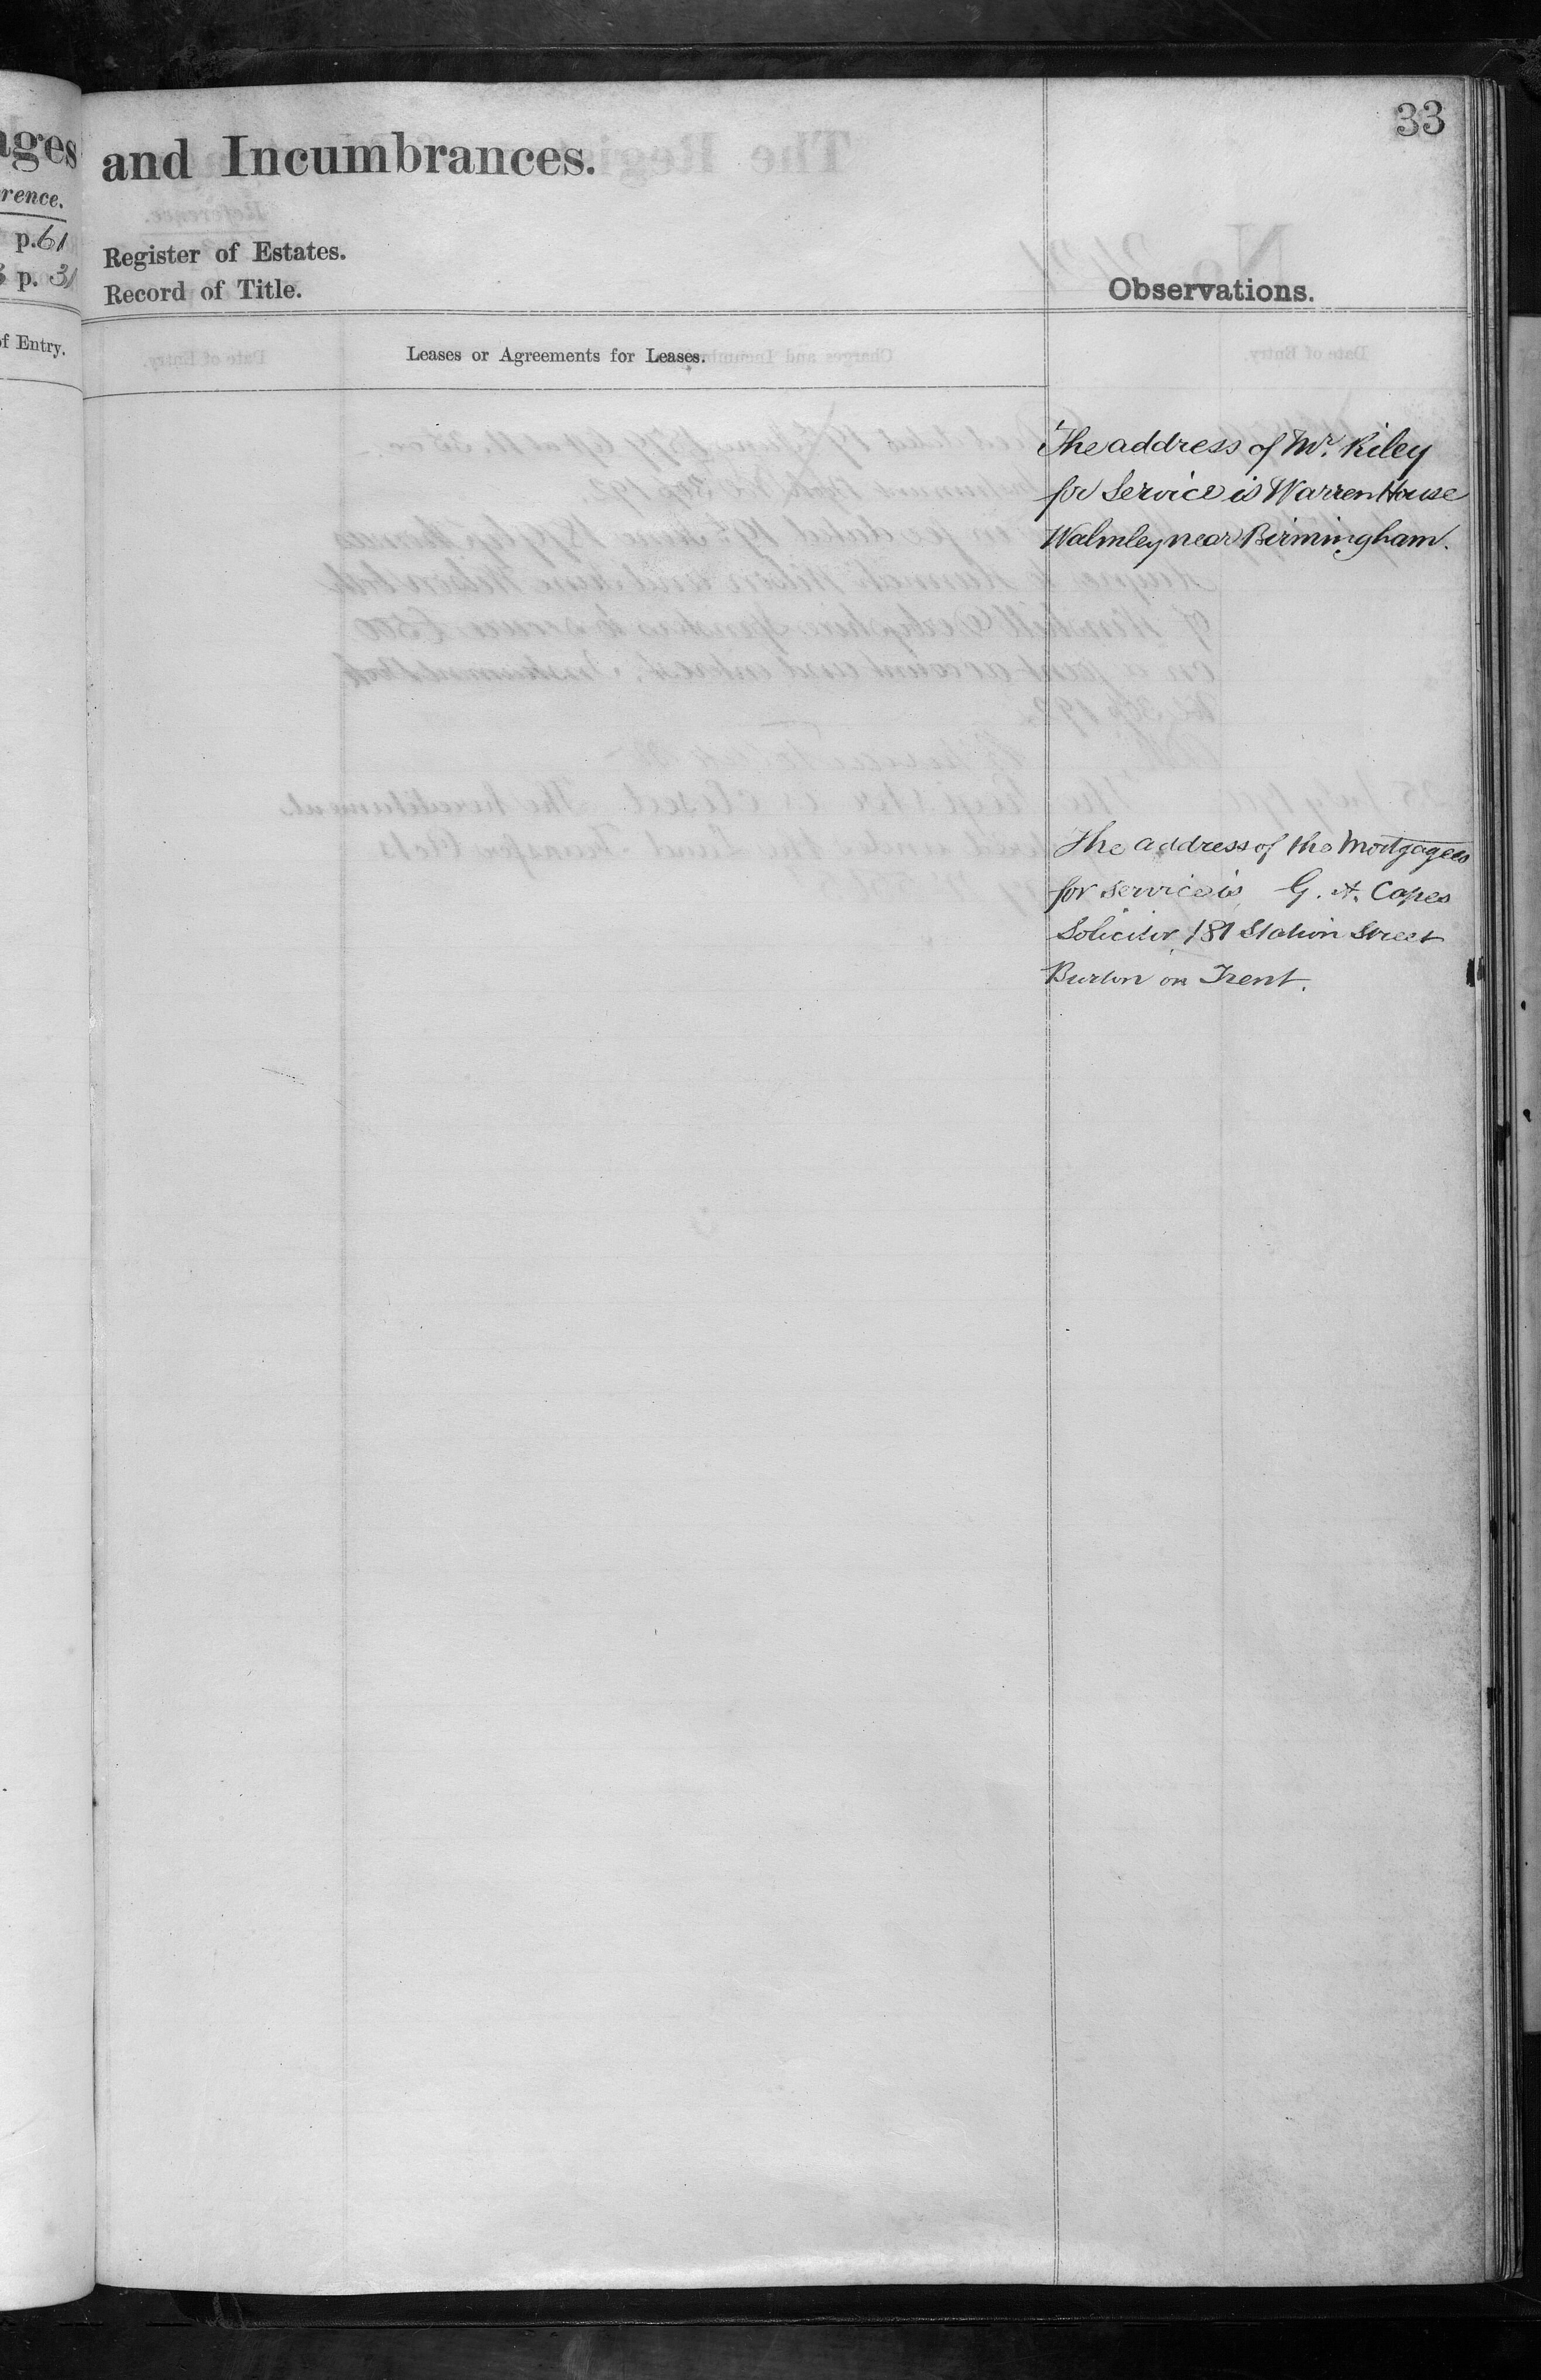 33
ages
rence.
p. 61
p. 31
of Entry.
and Incumbrances.
Register of Estates.
Record of Title.
Observations.
Leases or Agreements for Leases.
The address of Mr. Riley
for Service is Warren House
Walmley near Birmingham.
The address of the Mortgagees
for service is G. A. Capes
Solicitor 181 Station Street
Burton on Trent.